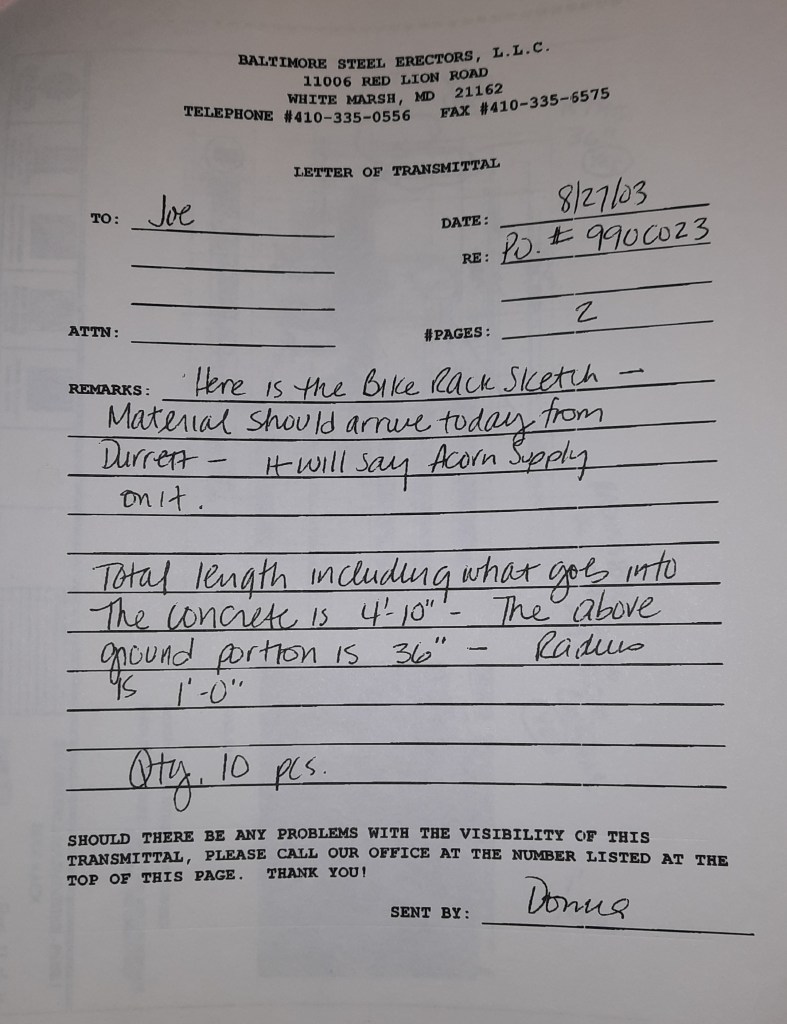 BALTIMORE STEEL ERECTORS, L.L.C.
11006 RED LION ROAD
WHITE MARSH, MD 21162
TELEPHONE #410-335-0556 FAX #410-335-6575
LETTER OF TRANSMITTAL
TO: Joe
DATE: 8/27/03
RE: P.O. # 990C023
ATTN:
#PAGES: 2
REMARKS: Here is the Bike Rack Sketch -
Material should arrive today from
Durrett - it will say Acorn Supply
on it.
Total length including what goes into
The concrete is 4'-10" - The above
ground portion is 36" - Radius
is 1'-0"
Qty. 10 pcs.
SHOULD THERE BE ANY PROBLEMS WITH THE VISIBILITY OF THIS
TRANSMITTAL, PLEASE CALL OUR OFFICE AT THE NUMBER LISTED AT THE
TOP OF THIS PAGE. THANK YOU!
SENT BY: Donna